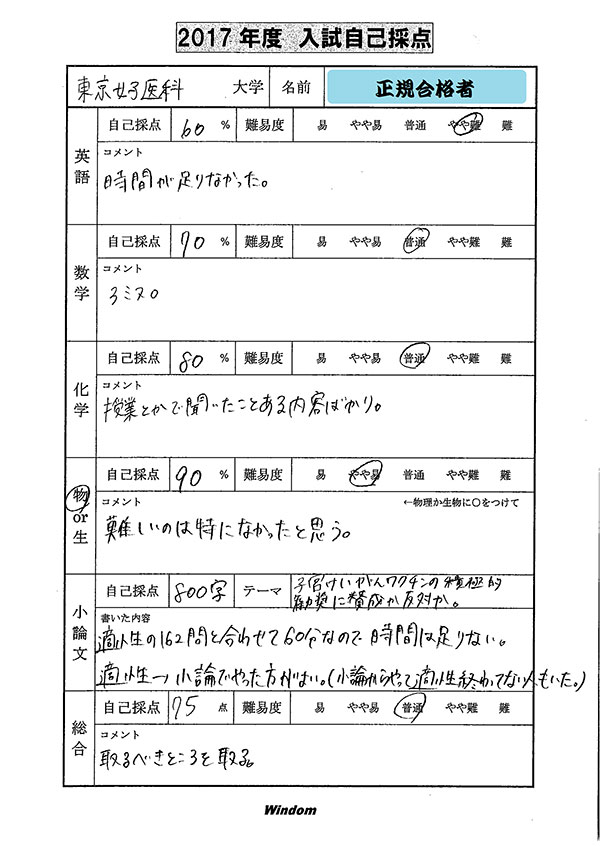 2017年度 入試自己採点
東京女子医科 大学 名前 正規合格者
英語
自己採点 60 % 難易度 易 やや易 普通 やや難 難
コメント
時間が足りなかった。
数学
自己採点 70 % 難易度 易 やや易 普通 やや難 難
コメント
化学
自己採点 80 % 難易度 易 やや易 普通 やや難 難
コメント
授業とかで聞いたことある内容ばかり。
物or生
自己採点 90 % 難易度 易 やや易 普通 やや難 難
コメント ←物理か生物に○をつけて
難しいのは特になかったと思う。
小論文
自己採点 800字 テーマ 子宮けいがんワクチンの積極的
勧奨に賛成か反対か。
書いた内容
適性の162問と合わせて60分なので時間は足りない。
適性→小論でやった方がいい。(小論からやって適性終わってない人もいた。)
総合
自己採点 75 点 難易度 易 やや易 普通 やや難 難
コメント
取るべきところを取る。
Windom